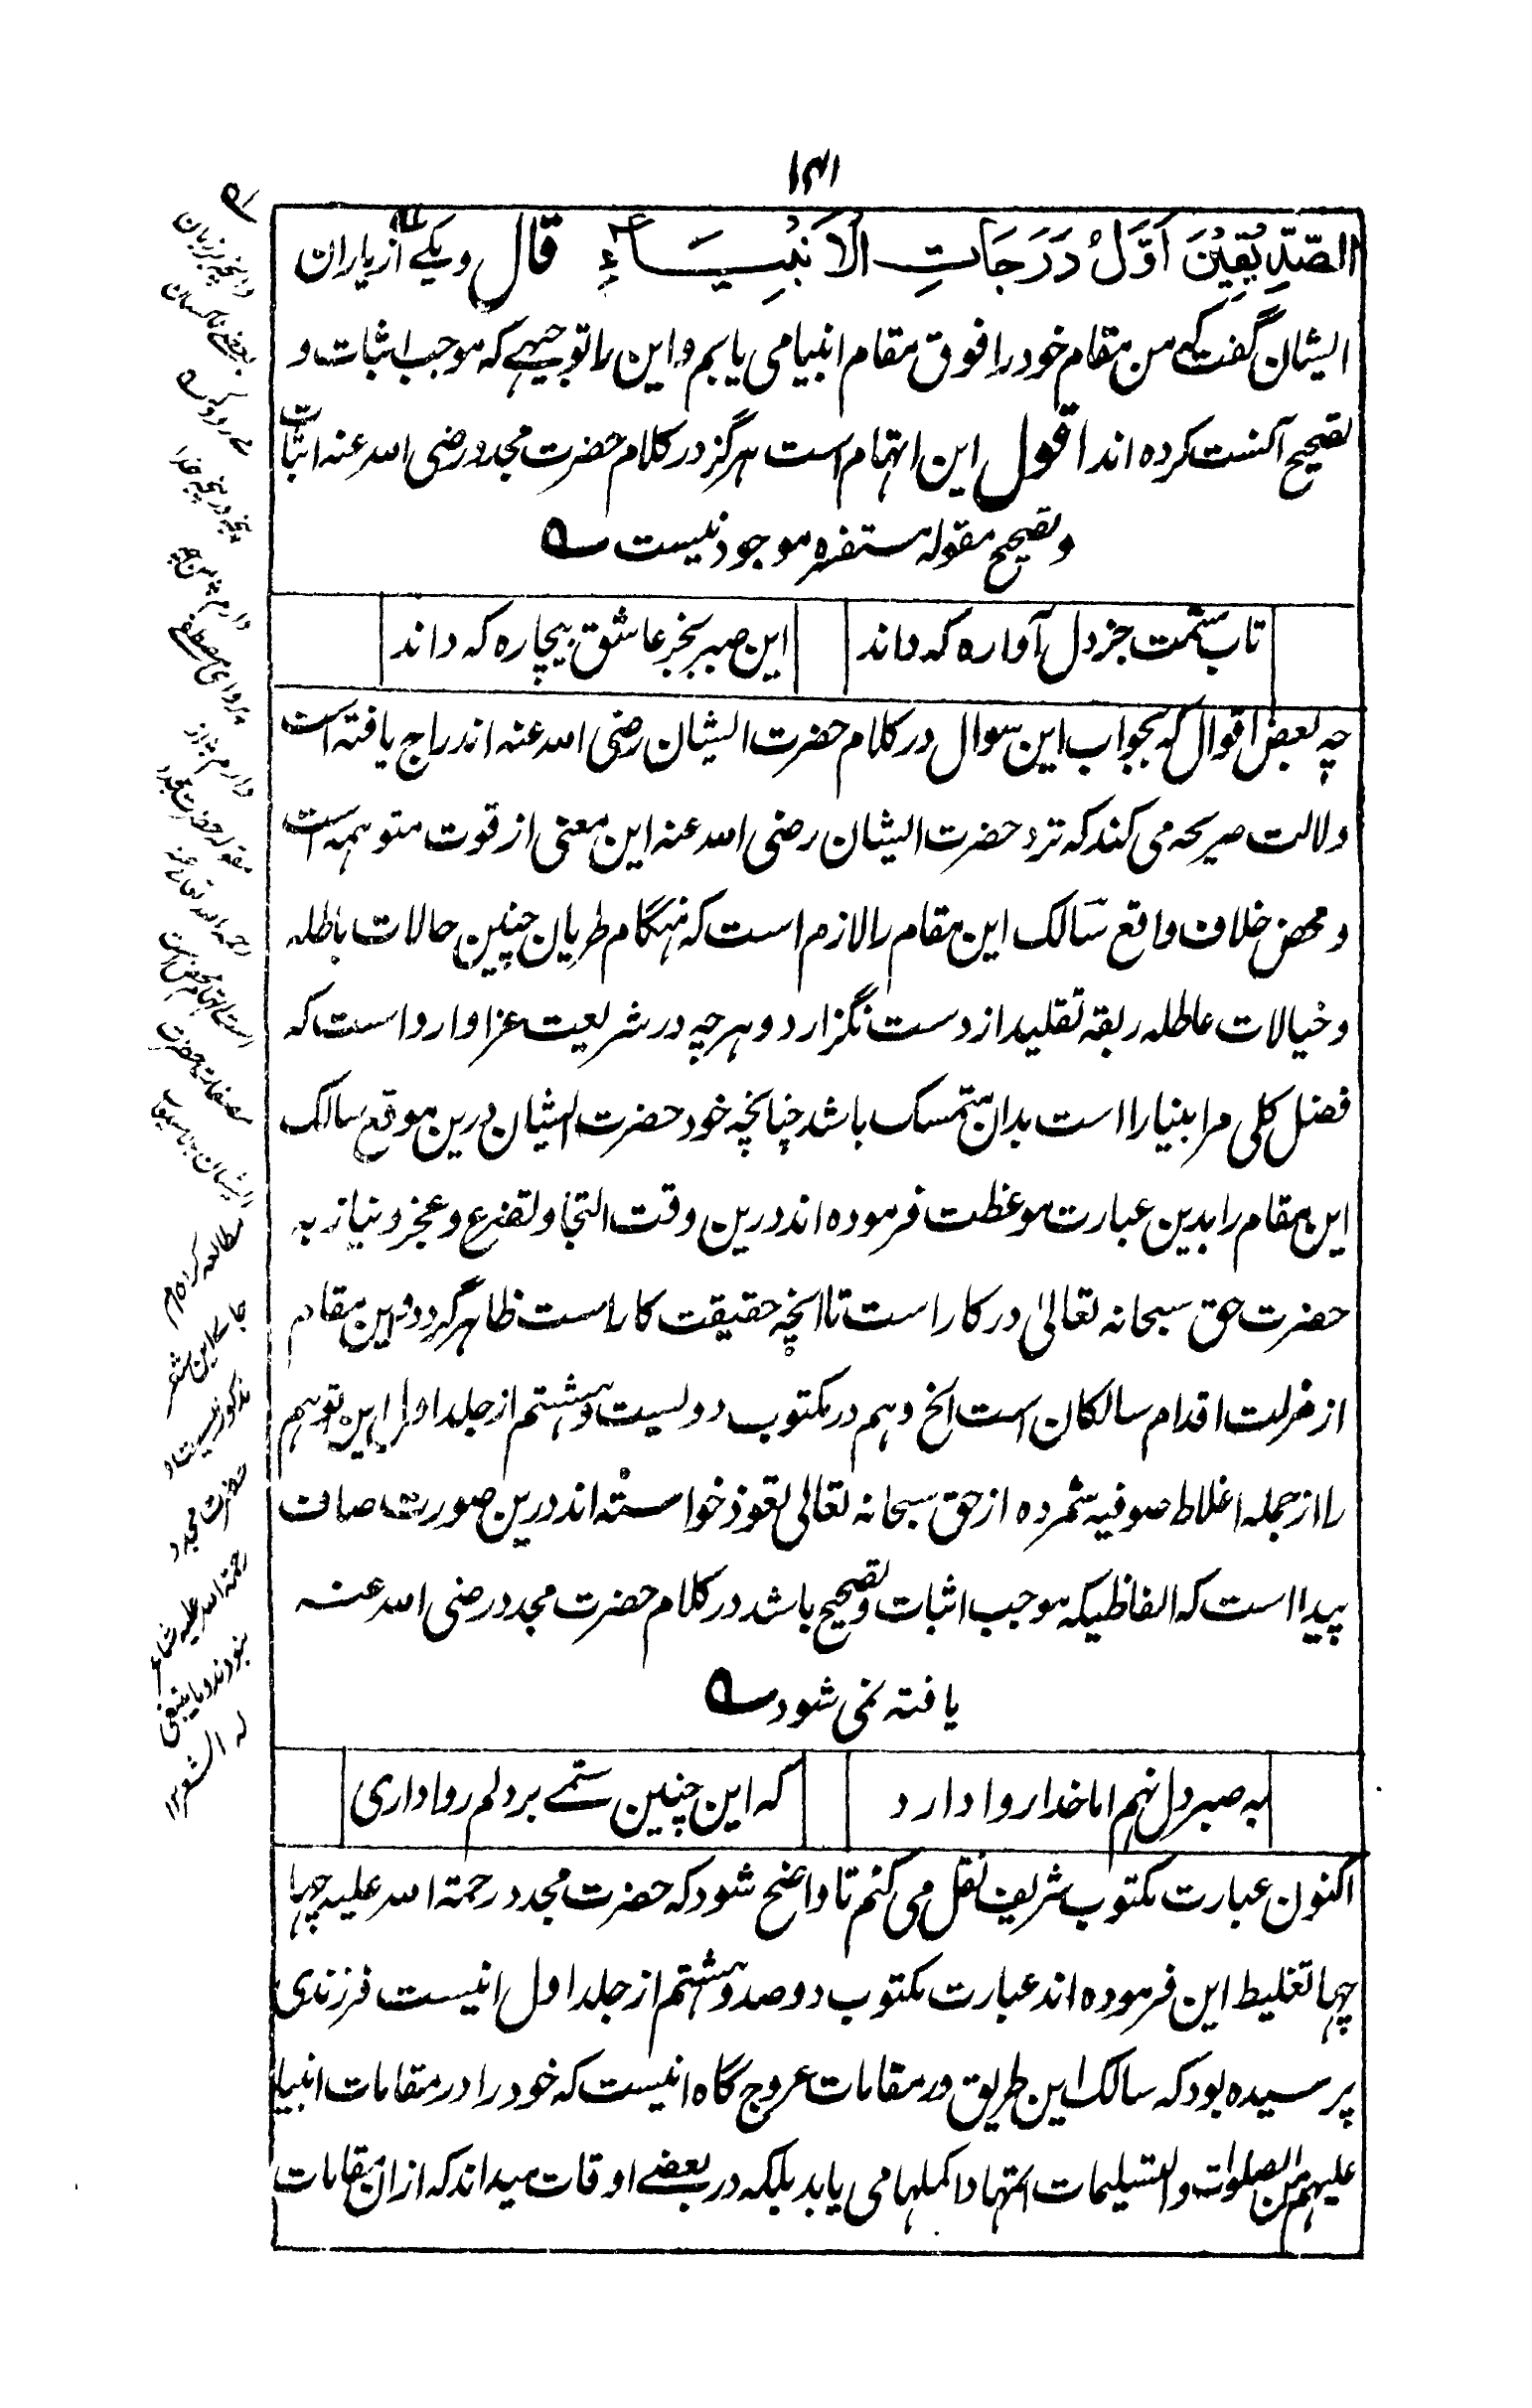 ۱۴۱
الصِّدِّيْقِيْنَ اَوَّلُ دَرَجَاتِ الْاَنْبِيَاءِ قال ویکے از یاران
ایشان گفت کہ من مقام خود را فوق مقام انبیا می یابم و این را توجیہے کہ موجب اثبات و
تصحیح آنست کردہ اند اقول این اتہام است ہرگز در کلام حضرت مجدد رضی اللہ عنہ اثبات
و تصحیح مقولہ مستفسرہ موجود نیست ؎
تاب ستمت جز دل آوارہ کہ داند
این صبر بجز عاشق بیچارہ کہ داند
چہ بعض اقوال کہ بجواب این سوال در کلام حضرت ایشان رضی اللہ عنہ اندراج یافتہ است
دلالت صریحہ می کند کہ نزد حضرت ایشان رضی اللہ عنہ این معنی از قوت متوہمہ است
و محض خلاف واقع سالک این مقام را لازم است کہ ہنگام طریان چنین حالات باطلہ
و خیالات عاطلہ ربقہ تقلید از دست نگزارد و ہرچہ در شریعت عزا وارد است کہ
فضل کلی مر انبیا را است بدان متمسک باشد چنانچہ خود حضرت ایشان درین موقع سالک
این مقام را بدین عبارت موعظت فرمودہ اند درین وقت التجا و تضرع و عجز و نیاز بہ
حضرت حق سبحانہ تعالیٰ در کار است تا آنچہ حقیقت کار است ظاہر گردد و این مقام
از مزلت اقدام سالکان است الخ و ہم در مکتوب دو لیست و ہشتم از جلد اول این توہم
را از جملہ اغلاط صوفیہ شمردہ از حق سبحانہ تعالی تعوذ خواستہ اند درین صورت صاف
پیدا است کہ الفاظیکہ موجب اثبات و تصحیح باشد در کلام حضرت مجدد رضی اللہ عنہ
یافتہ نمی شود ؎
بہ صبر دل نہم اما خدا روا دارد
کہ این چنین ستمے بر دلم روا داری
اکنون عبارت مکتوب شریف نقل می کنم تا واضح شود کہ حضرت مجدد رحمۃ اللہ علیہ چہا
چہا تغلیط این فرمودہ اند عبارت مکتوب دو صد و ہشتم از جلد اول انیست فرزندی
پرسیدہ بود کہ سالک این طریق در مقامات عروج گاہ انیست کہ خود را در مقامات انبیا
علیہم من الصلوات والتسلیمات اتمہا و اکملہا می یابد بلکہ در بعضے اوقات میداند کہ ازان مقامات
وانچہ بر زبان
بعضے ناکسان
پنجہ در پنجہ خدا
دارم من چہ
پروای مصطفے
دارم
مقولہ حضرت مجدد
رحمہ اللہ تعالی
است اتہام محض است
مصنفات حضرت
ایشان
مطالعہ کردہ ام
جائے این شعر
مذکور نیست و
حضرت مجدد
رحمۃ اللہ علیہ شاعر
نبودند و ما ینبغی
لہ الشعر ۱۲